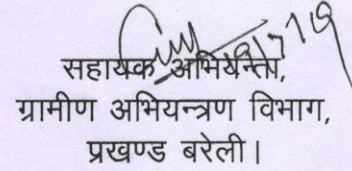 सहायक अभियन्ता,
ग्रामीण अभियन्त्रण विभाग,
प्रखण्ड बरेली।